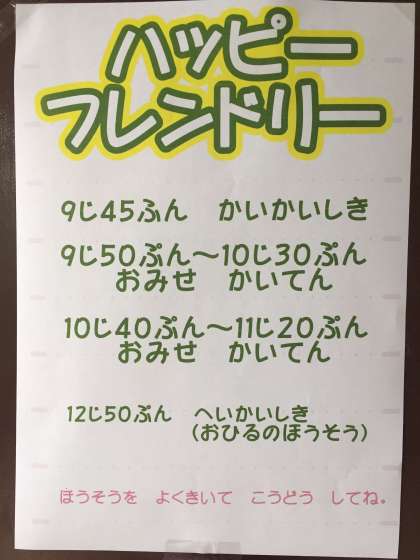 ハッピー
フレンドリー
9じ45ふん　かいかいしき
9じ50ぷん〜10じ30ぷん
おみせ　かいてん
10じ40ぷん〜11じ20ぷん
おみせ　かいてん
12じ50ぷん　へいかいしき
(おひるのほうそう)
ほうそうを　よくきいて　こうどう　してね。